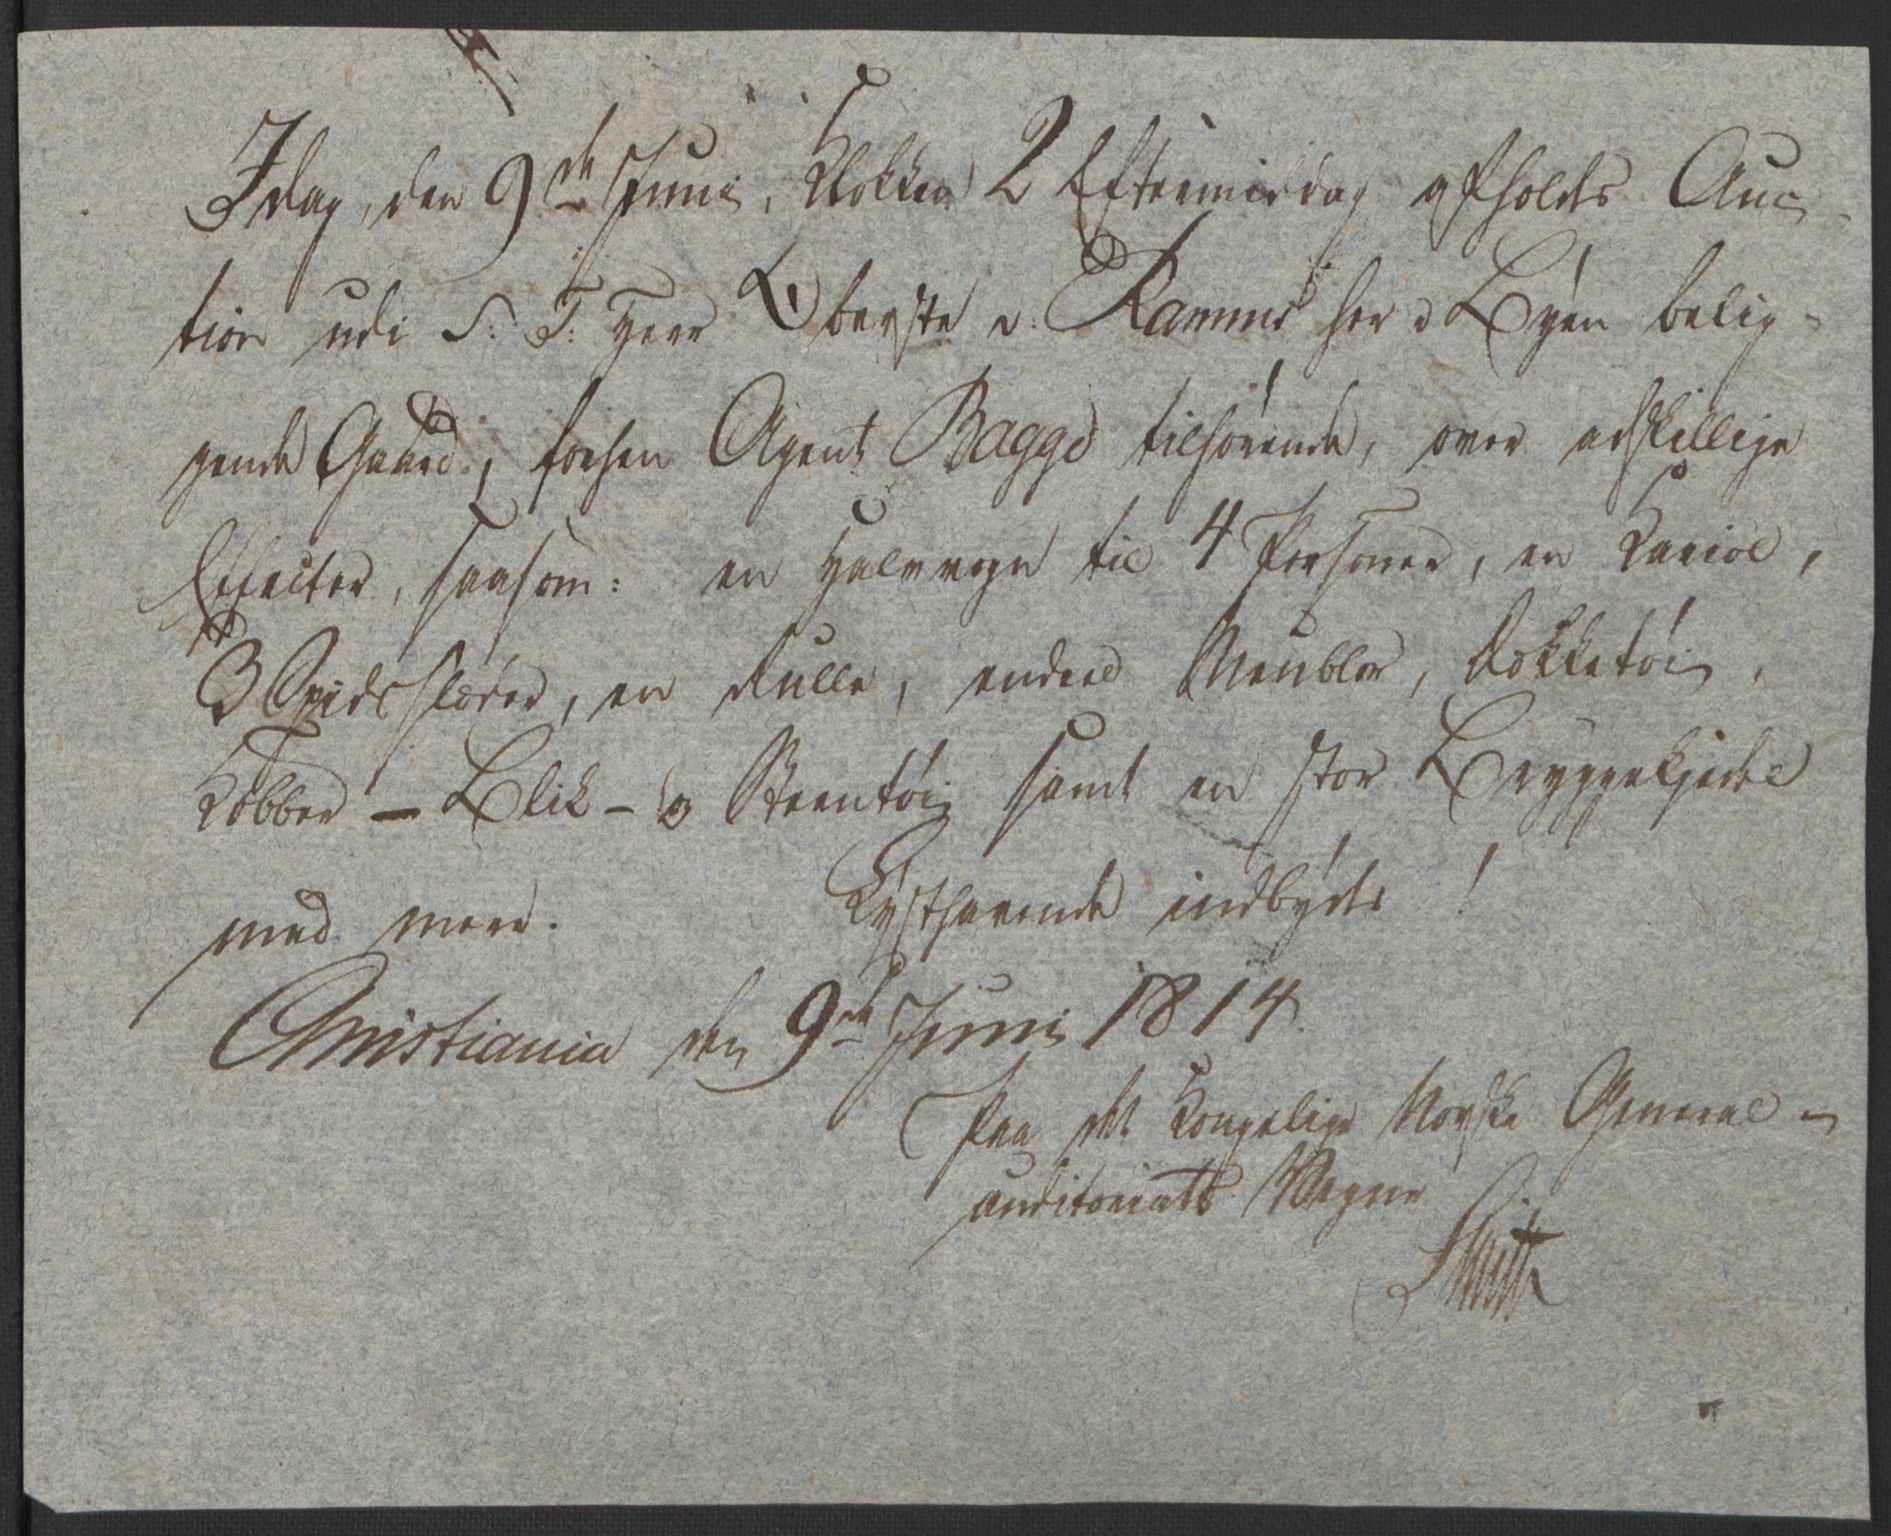 Idag, den 9de Juni, Klokken 2 Eftermiddag afholdes Auc-
tion udi S: T: Herr Oberste v: Ramms her i Byen belig-
gende Gaard, forhen Agent Bagge tilhørende, over adskillige
Effecter, saasom: en Halvvogn til 4 Personer, en Kariol,
3 Spidsslæder, en Rulle, endeel Meubler,
Kobber - Blik - og Steentøi samt en stor Bryggekjedel
med mere. Lysthavende indbydes!
Christiania den 9de Juni 1814.
Paa det Kongelige Norske General-
auditoriats Vegne